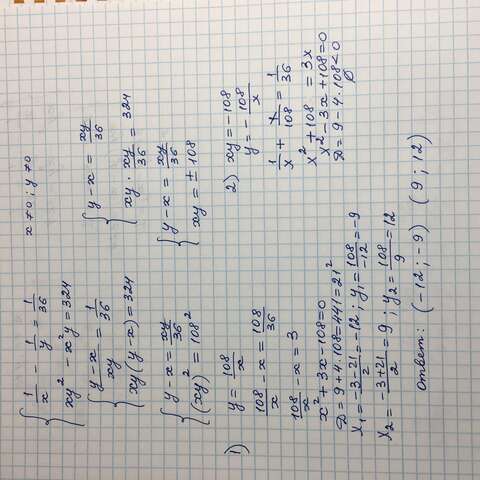 { 1/x - 1/y = 1/36    x ≠ 0 ; y ≠ 0
{ xy² - x²y = 324
{ (y-x)/xy = 1/36    { y - x = xy/36
{ xy(y-x) = 324    { xy · xy/36 = 324
{ y - x = xy/36    { y - x = xy/36
{ (xy)² = 108²    { xy = ± 108
1) y = 108/x
108/x - x = 108/36
108/x - x = 3
x² + 3x - 108 = 0
D = 9 + 4·108 = 441 = 21²
x₁ = (-3-21)/2 = -12 ; y₁ = 108/-12 = -9
x₂ = (-3+21)/2 = 9 ; y₂ = 108/9 = 12
2) xy = -108
y = - 108/x
1/x + x/108 = 1/36
x² + 108 = 3x
x² - 3x + 108 = 0
D = 9 - 4·108 < 0
∅
Ответ: (-12 ; -9) (9 ; 12)